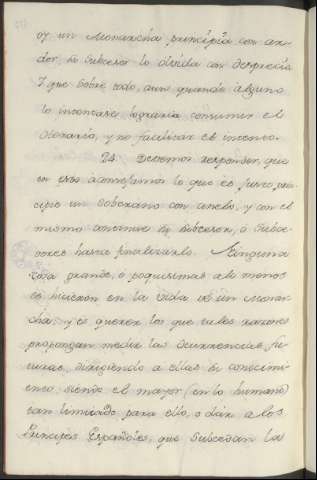 oy un Monarcha principia con ar-
dor, su subcesor lo olvida con desprecio
Y que sobre todo, aun quando alguno
lo intentase lograria consumir el
Herario, y no facilitar el intento.
24. Devemos responder, que
en esto aconsejamos lo que es justo, prin-
cipie un soberano con anelo, y con el
mismo continue su subcesor, o subce-
sores hasta finalizarlo. Ninguna
cosa grande, o poquisimas a lo menos
se hicieron en la vida de un Monar-
cha, y es querer los que tales razones
propongan medir las ocurrencias fu-
turas, dirigiendo a ellas su conocimi-
ento, siendo el mayor (en lo humano)
tan limitado para ello, o dár a los
Principes Españoles, que subcedan la